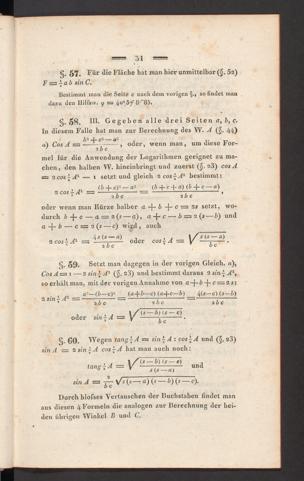 — 51 —
§. 57. Für die Fläche hat man hier unmittelbar (§. 52)
F = ½ a b sin C.
Bestimmt man die Seite c nach dem vorigen §., so findet man
dazu den Hilfsw. φ = 40° 57′ 8″85.
§. 58. III. Gegeben alle drei Seiten a, b, c.
In diesem Falle hat man zur Berechnung des W. A (§. 44)
a) Cos A = (b² + c² − a²) / 2bc, oder, wenn man, um diese For-
mel für die Anwendung der Logarithmen geeignet zu ma-
chen, den halben W. hineinbringt und zuerst (§. 23) cos A
= 2 cos ½ A² − 1 setzt und gleich 2 cos ½ A² bestimmt:
2 cos ½ A² = ((b + c)² − a²) / 2bc = (b + c + a) (b + c − a) / 2bc,
oder wenn man Kürze halber a + b + c = 2s setzt, wo-
durch b + c − a = 2 (s − a), a + c − b = 2 (s − b) und
a + b − c = 2 (s − c) wird, auch
2 cos ½ A² = 4s (s − a) / 2bc oder cos ½ A = √(s (s − a) / bc).
§. 59. Setzt man dagegen in der vorigen Gleich. a),
Cos A = 1 − 2 sin ½ A² (§. 23) und bestimmt daraus 2 sin ½ A²,
so erhält man, mit der vorigen Annahme von a + b + c = 2s:
2 sin ½ A² = (a² − (b − c)²) / 2bc = (a + b − c) (a + c − b) / 2bc = 4 (s − c) (s − b) / 2bc
oder sin ½ A = √((s − b) (s − c) / bc).
§. 60. Wegen tang ½ A = sin ½ A : cos ½ A und (§. 23)
sin A = 2 sin ½ A cos ½ A hat man auch noch:
tang ½ A = √((s − b) (s − c) / s (s − a)) und
sin A = 2/bc √(s (s − a) (s − b) (s − c)).
Durch bloſses Vertauschen der Buchstaben findet man
aus diesen 4 Formeln die analogen zur Berechnung der bei-
den übrigen Winkel B und C.